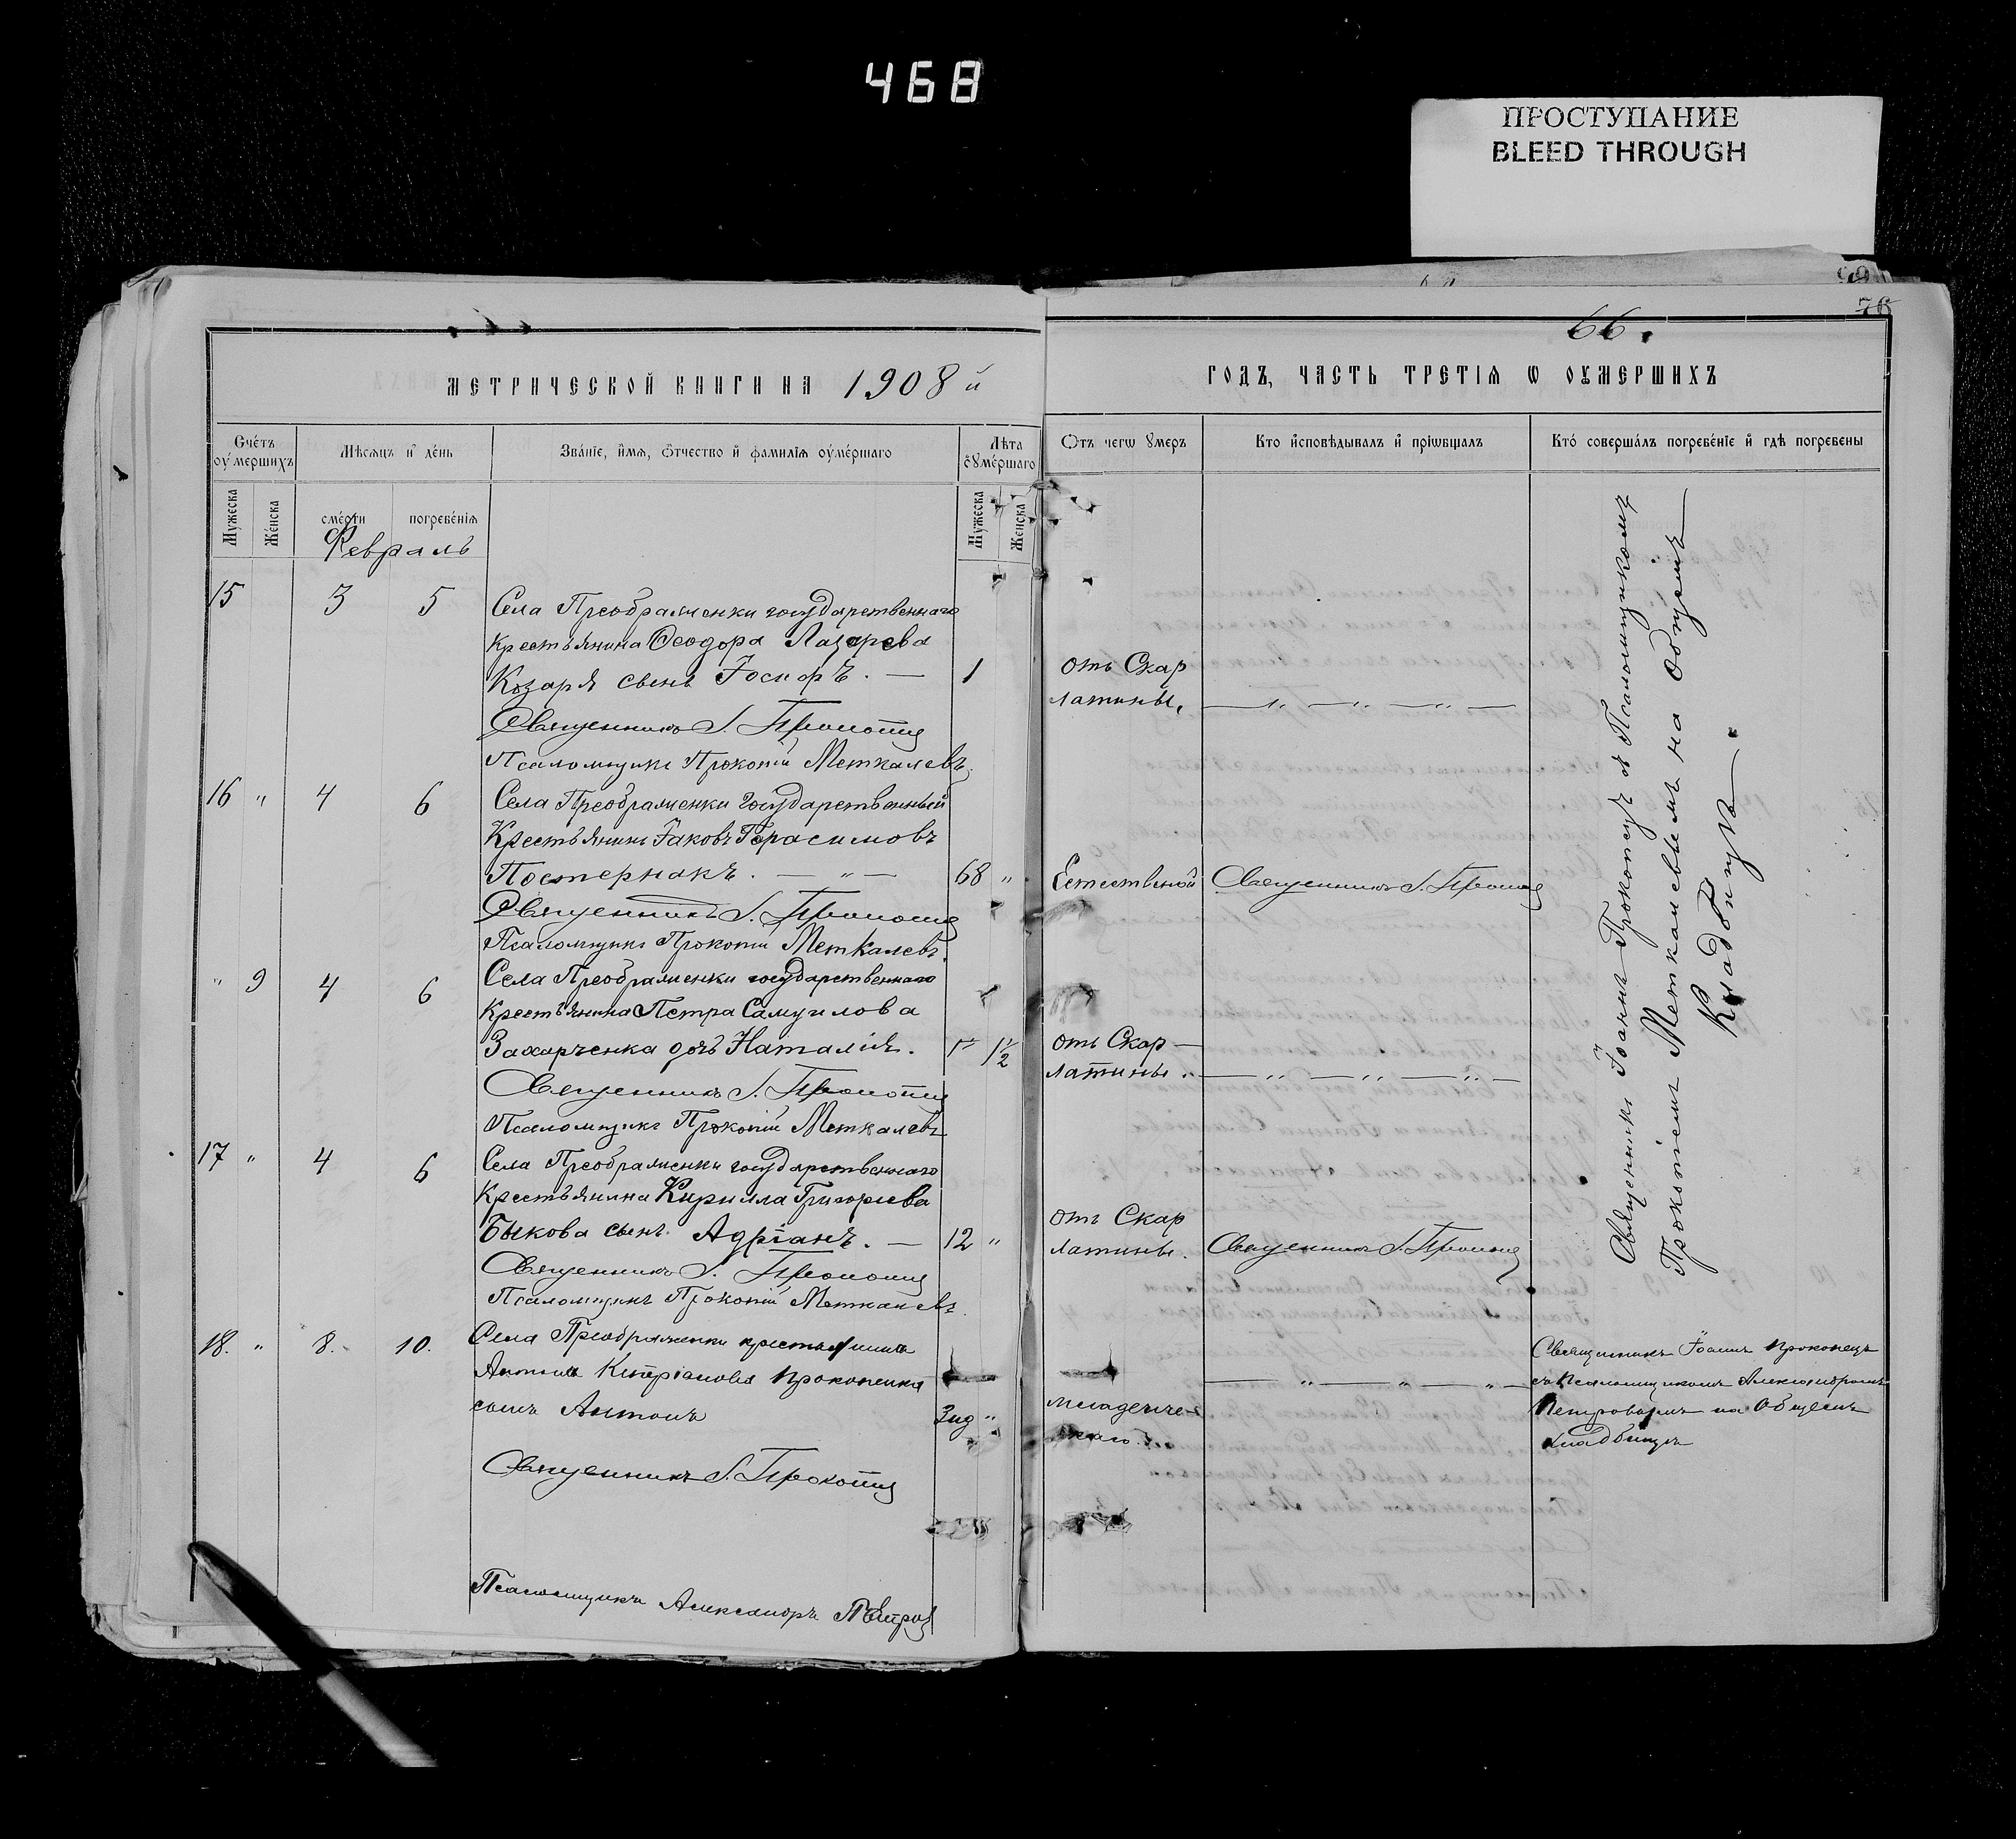 468
ПРОСТУПАНИЕ
BLEED THROUGH
76
66.
МЕТРИЧЕСКОЙ КНИГИ НА 1908 й
ГОДЪ, ЧАСТЬ ТРЕТІЯ Ѡ ОУМЕРШИХЪ
Счётъ оумершихъ
Мѣсяцъ и день
Званіе, имя, отчество и фамилія оумершаго
Лѣта оумершаго
Отъ чегѡ умеръ
Кто исповѣдывалъ и пріѡбщалъ
Кто совершалъ погребеніе и гдѣ погребены
Мужеска
Женска
смерти
погребенія
Мужеска
Женска
Февраль
15 3 5 Села Преображенки государственнаго
крестьянина Ѳеодора Лазарева
Козаря сынъ Іосифъ. — 1 отъ Скар
латины.
Священникъ І. Прокопецъ
Псаломщикъ Прокопій Меткалевъ
16 " 4 6 Села Преображенки государственный
Крестьянинъ Іаковъ Герасимовъ
Постернакъ. — " — 68 " Естественой Священникъ І. Прокопецъ
Священникъ І. Прокопецъ
Псаломщикъ Прокопій Меткалевъ.
" 9 4 6 Села Преображенки государственнаго
Крестьянина Петра Самуилова
Захарченка дочь Наталія. 1½ отъ Скар—
латины. — " — " — " —
Священникъ І. Прокопецъ
Псаломщикъ Прокопій Меткалевъ
17 " 4 6 Села Преображенки государственнаго
Крестьянина Кирилла Григорьева
Быкова сынъ Адріанъ. — 12 " отъ Скар
латины. Священникъ І. Прокопецъ
Священникъ І. Прокопецъ
Псаломщикъ Прокопій Меткалевъ.
18. " 8. 10. Села Преображенки крестьянина
Антона Кипріанова Прокопенка
сынъ Антонъ 3нд " младенче-
скаго
Священникъ І. Прокопецъ
Псаломщикъ Александръ Петровъ
Священникъ Іоаннъ Прокопецъ съ Псаломщикомъ
Прокопіемъ Меткалевымъ на общемъ
Кладбищѣ.
Священникъ Іоаннъ Прокопецъ
съ Псаломщикомъ Александромъ
Петровымъ на Общемъ
кладбищѣ